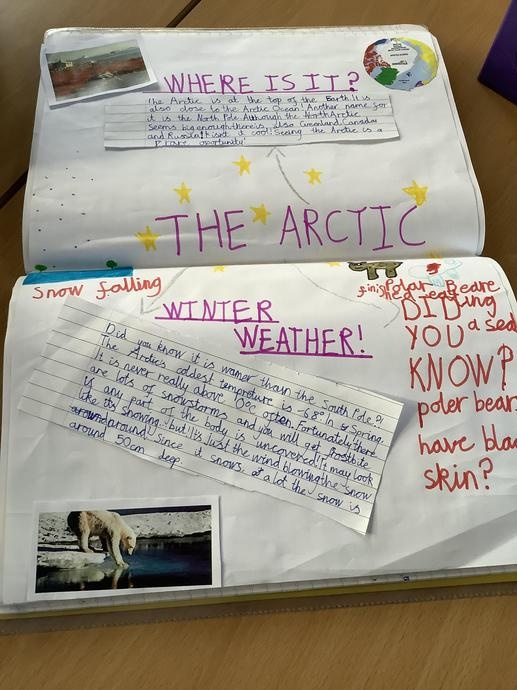 WHERE IS IT?
The Arctic is at the top of the Earth! It is
also close to the Arctic Ocean! Another name for
it is the North Pole. Although the North Arctic
seems big enough there is also Greenland, Canada
and Russia! Isnt it cool! Seeing the Arctic is a
rare oportunity
THE ARCTIC
Snow falling
WINTER
WEATHER!
Did you know it is warmer than the South Pole?!
The Arctics coldest tempreture is -68° in Spring.
It is never really above 0°c often. Fortunately there
are lots of snowstorms and you will get frostbite
is any part of the body is uncovered! It may look
like its showing, but! It's just the wind blowing the snow
around around! Since it snows at a lot the snow is
around 50cm deep
Polar Beare
finished eating
a seal
DID
YOU
KNOW?
poler bears
have black
skin?